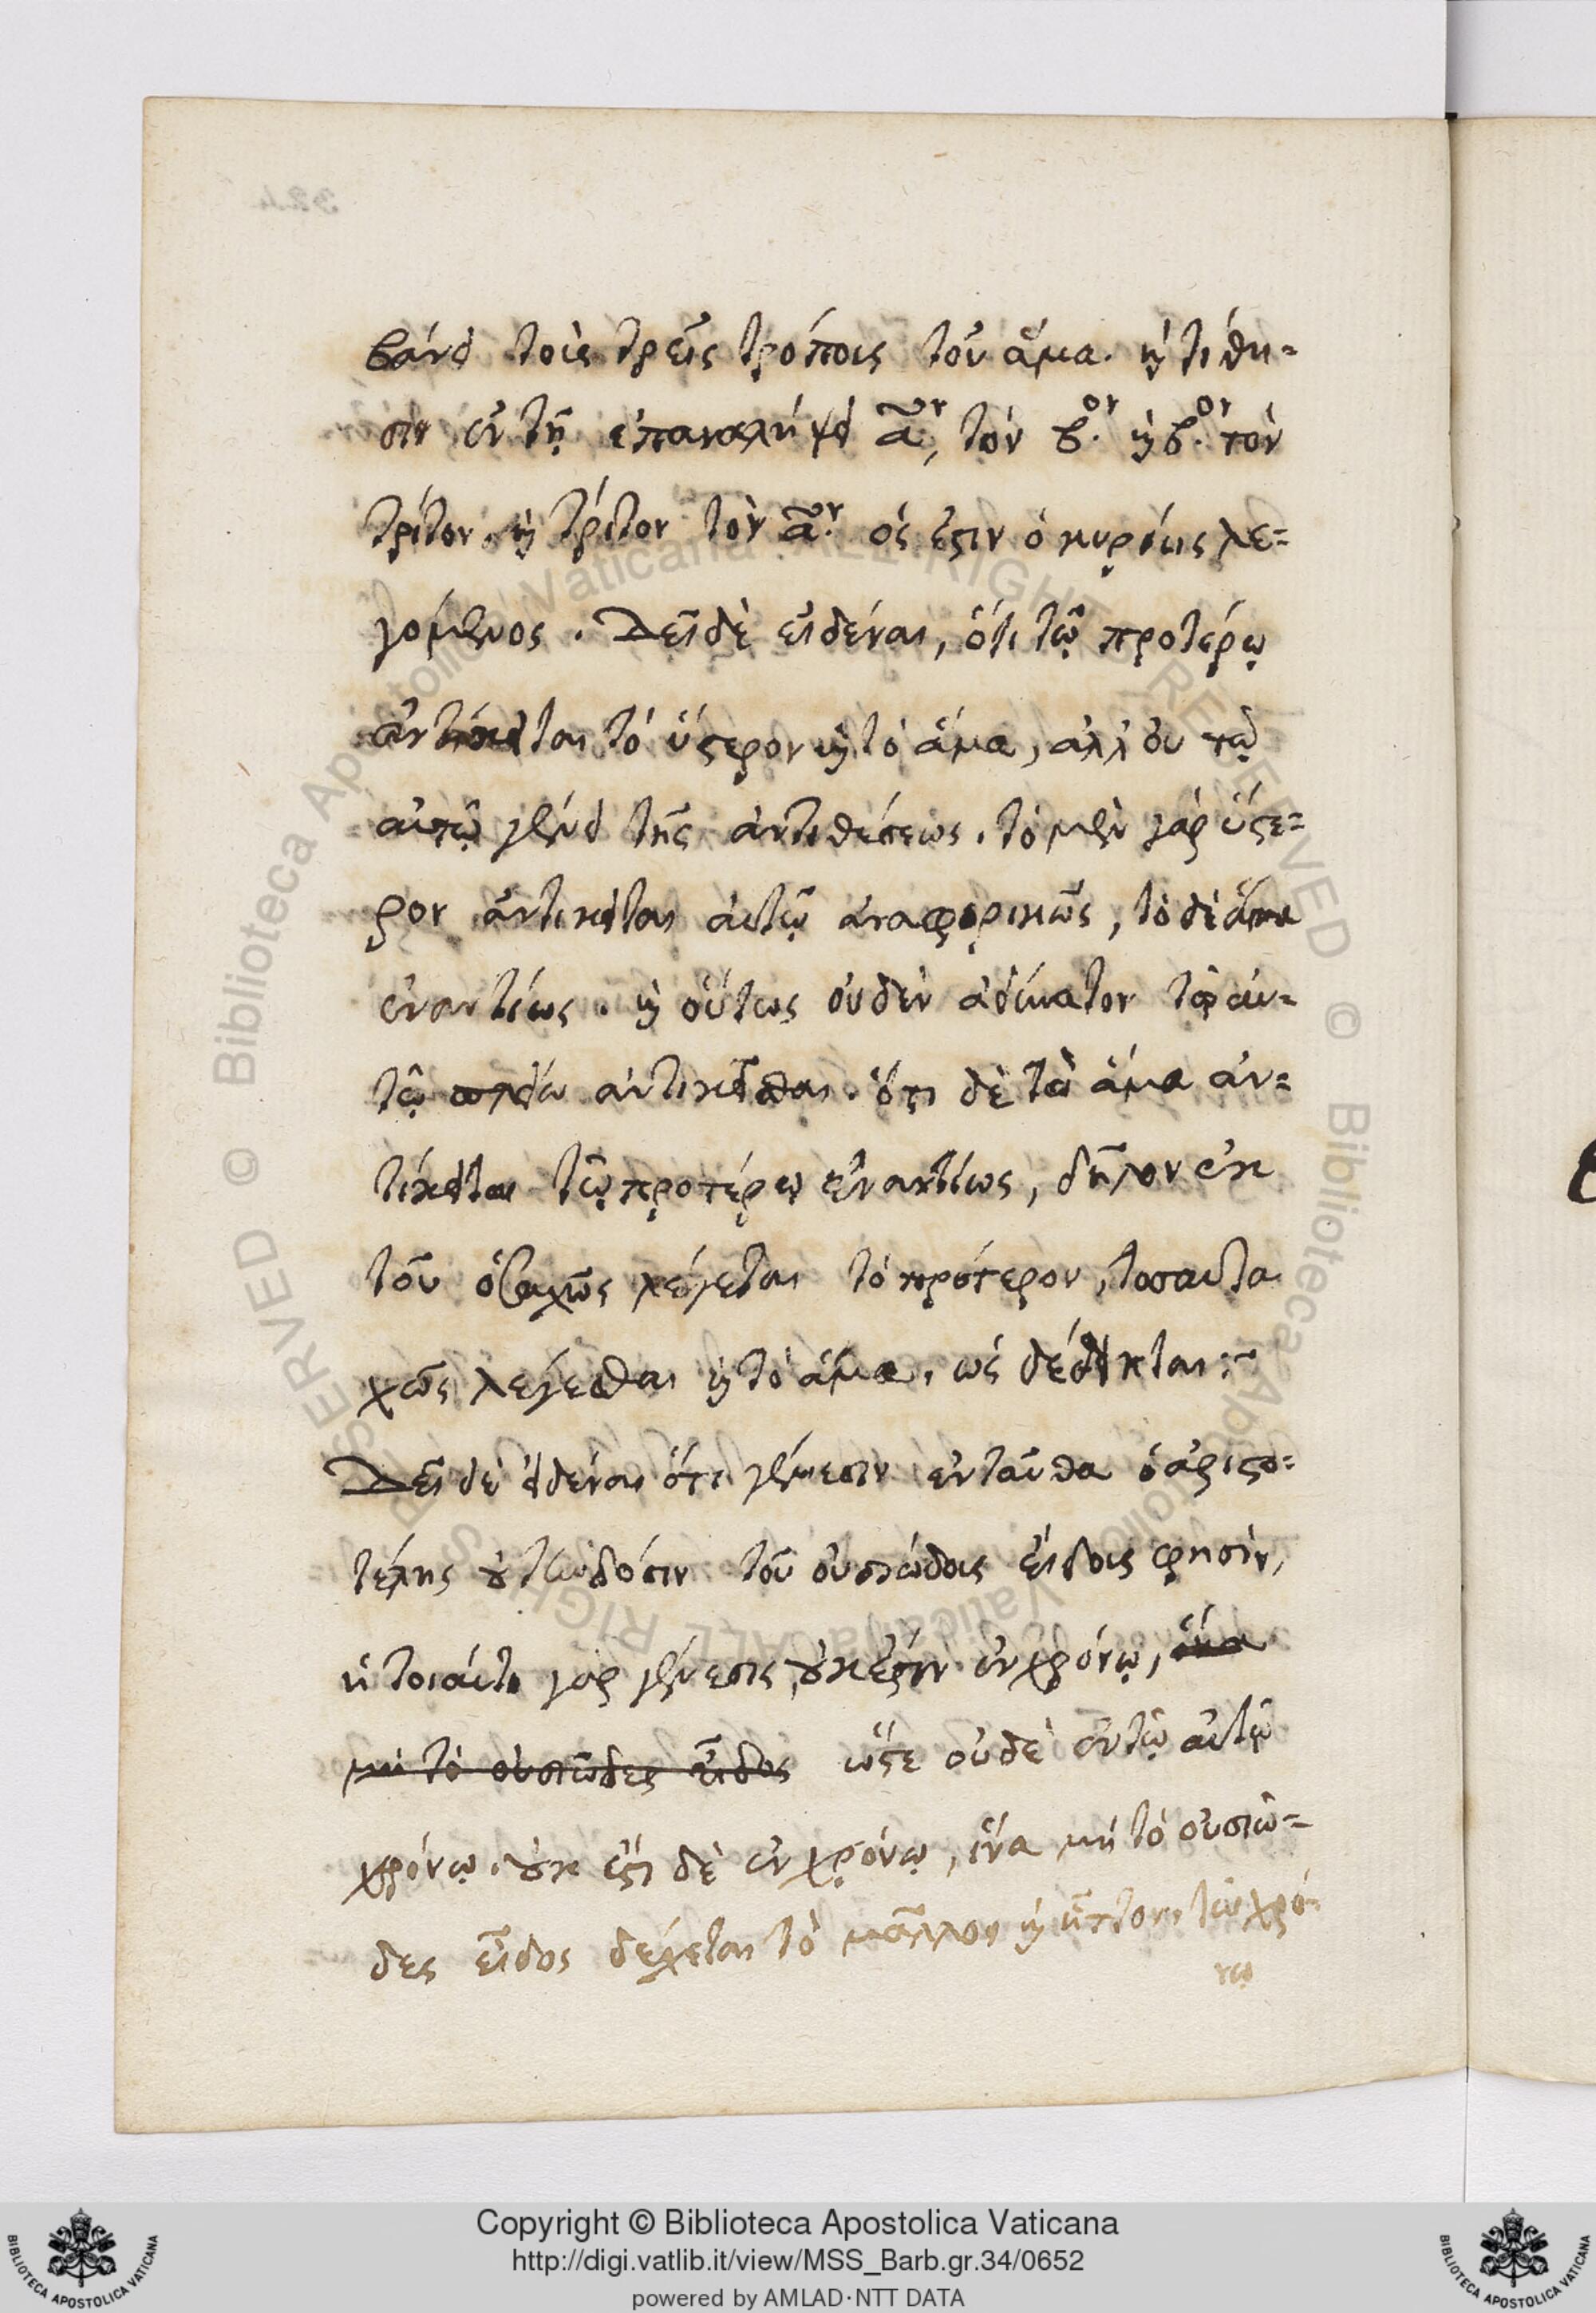 βάνει τοὺς τρεῖς τρόπους τοῦ ἅμα. καὶ τίθη=
σιν ἐν τῇ ἐπαναλήψει α̃ον, τὸν β.ον καὶ β.ον τὸν
τρίτον. καὶ τρίτον τὸν α̃.ον ὅς ἐστιν ὁ κυρίως λε=
γόμενος. Δεῖ δὲ εἰδέναι, ὅτι τῷ προτέρῳ
ἀντίκειται τὸ ὕστερον καὶ τὸ ἅμα, ἀλλ' οὐ τῷ
αὐτῷ γένει τῆς ἀντιθέσεως. τὸ μὲν γὰρ ὕστε=
ρον ἀντίκειται αὐτῷ ἀναφορικῶς, τὸ δὲ ἅμα
ἐναντίως. καὶ οὕτως οὐδὲν ἀδύνατον τῷ αὐ=
τῷ πλείω ἀντικεῖσθαι. ὅτι δὲ τὸ ἅμα ἀν=
τίκειται τῷ προτέρῳ ἐναντίως, δῆλον ἐκ
τοῦ ὁσαχῶς λέγεται τὸ πρότερον, τοσαυτα
χῶς λέγεσθαι καὶ τὸ ἅμα. ὡς δέδεικται:~
Δεῖ δὲ εἰδέναι ὅτι γένεσιν ἐνταῦθα ὁ ἀριστο=
τέλης οὐ τὴν δόσιν τοῦ οὐσιώδους εἴδους φησὶν,
ἡ τοιαύτη γὰρ γένεσις, οὐκ ἔστιν ἐν χρόνῳ, ἵνα
μὴ τὸ οὐσιῶδες εἶδος ὥστε οὐδὲ ἐν τῷ αὐτῷ
χρόνῳ. οὐκ ἔστι δὲ ἐν χρόνῳ, ἵνα μὴ τὸ οὐσιῶ=
δες εἶδος δέχεται τὸ μᾶλλον καὶ ἧττον τῷ χρό-
νῳ
324
Copyright © Biblioteca Apostolica Vaticana
http://digi.vatlib.it/view/MSS_Barb.gr.34/0652
powered by AMLAD·NTT DATA